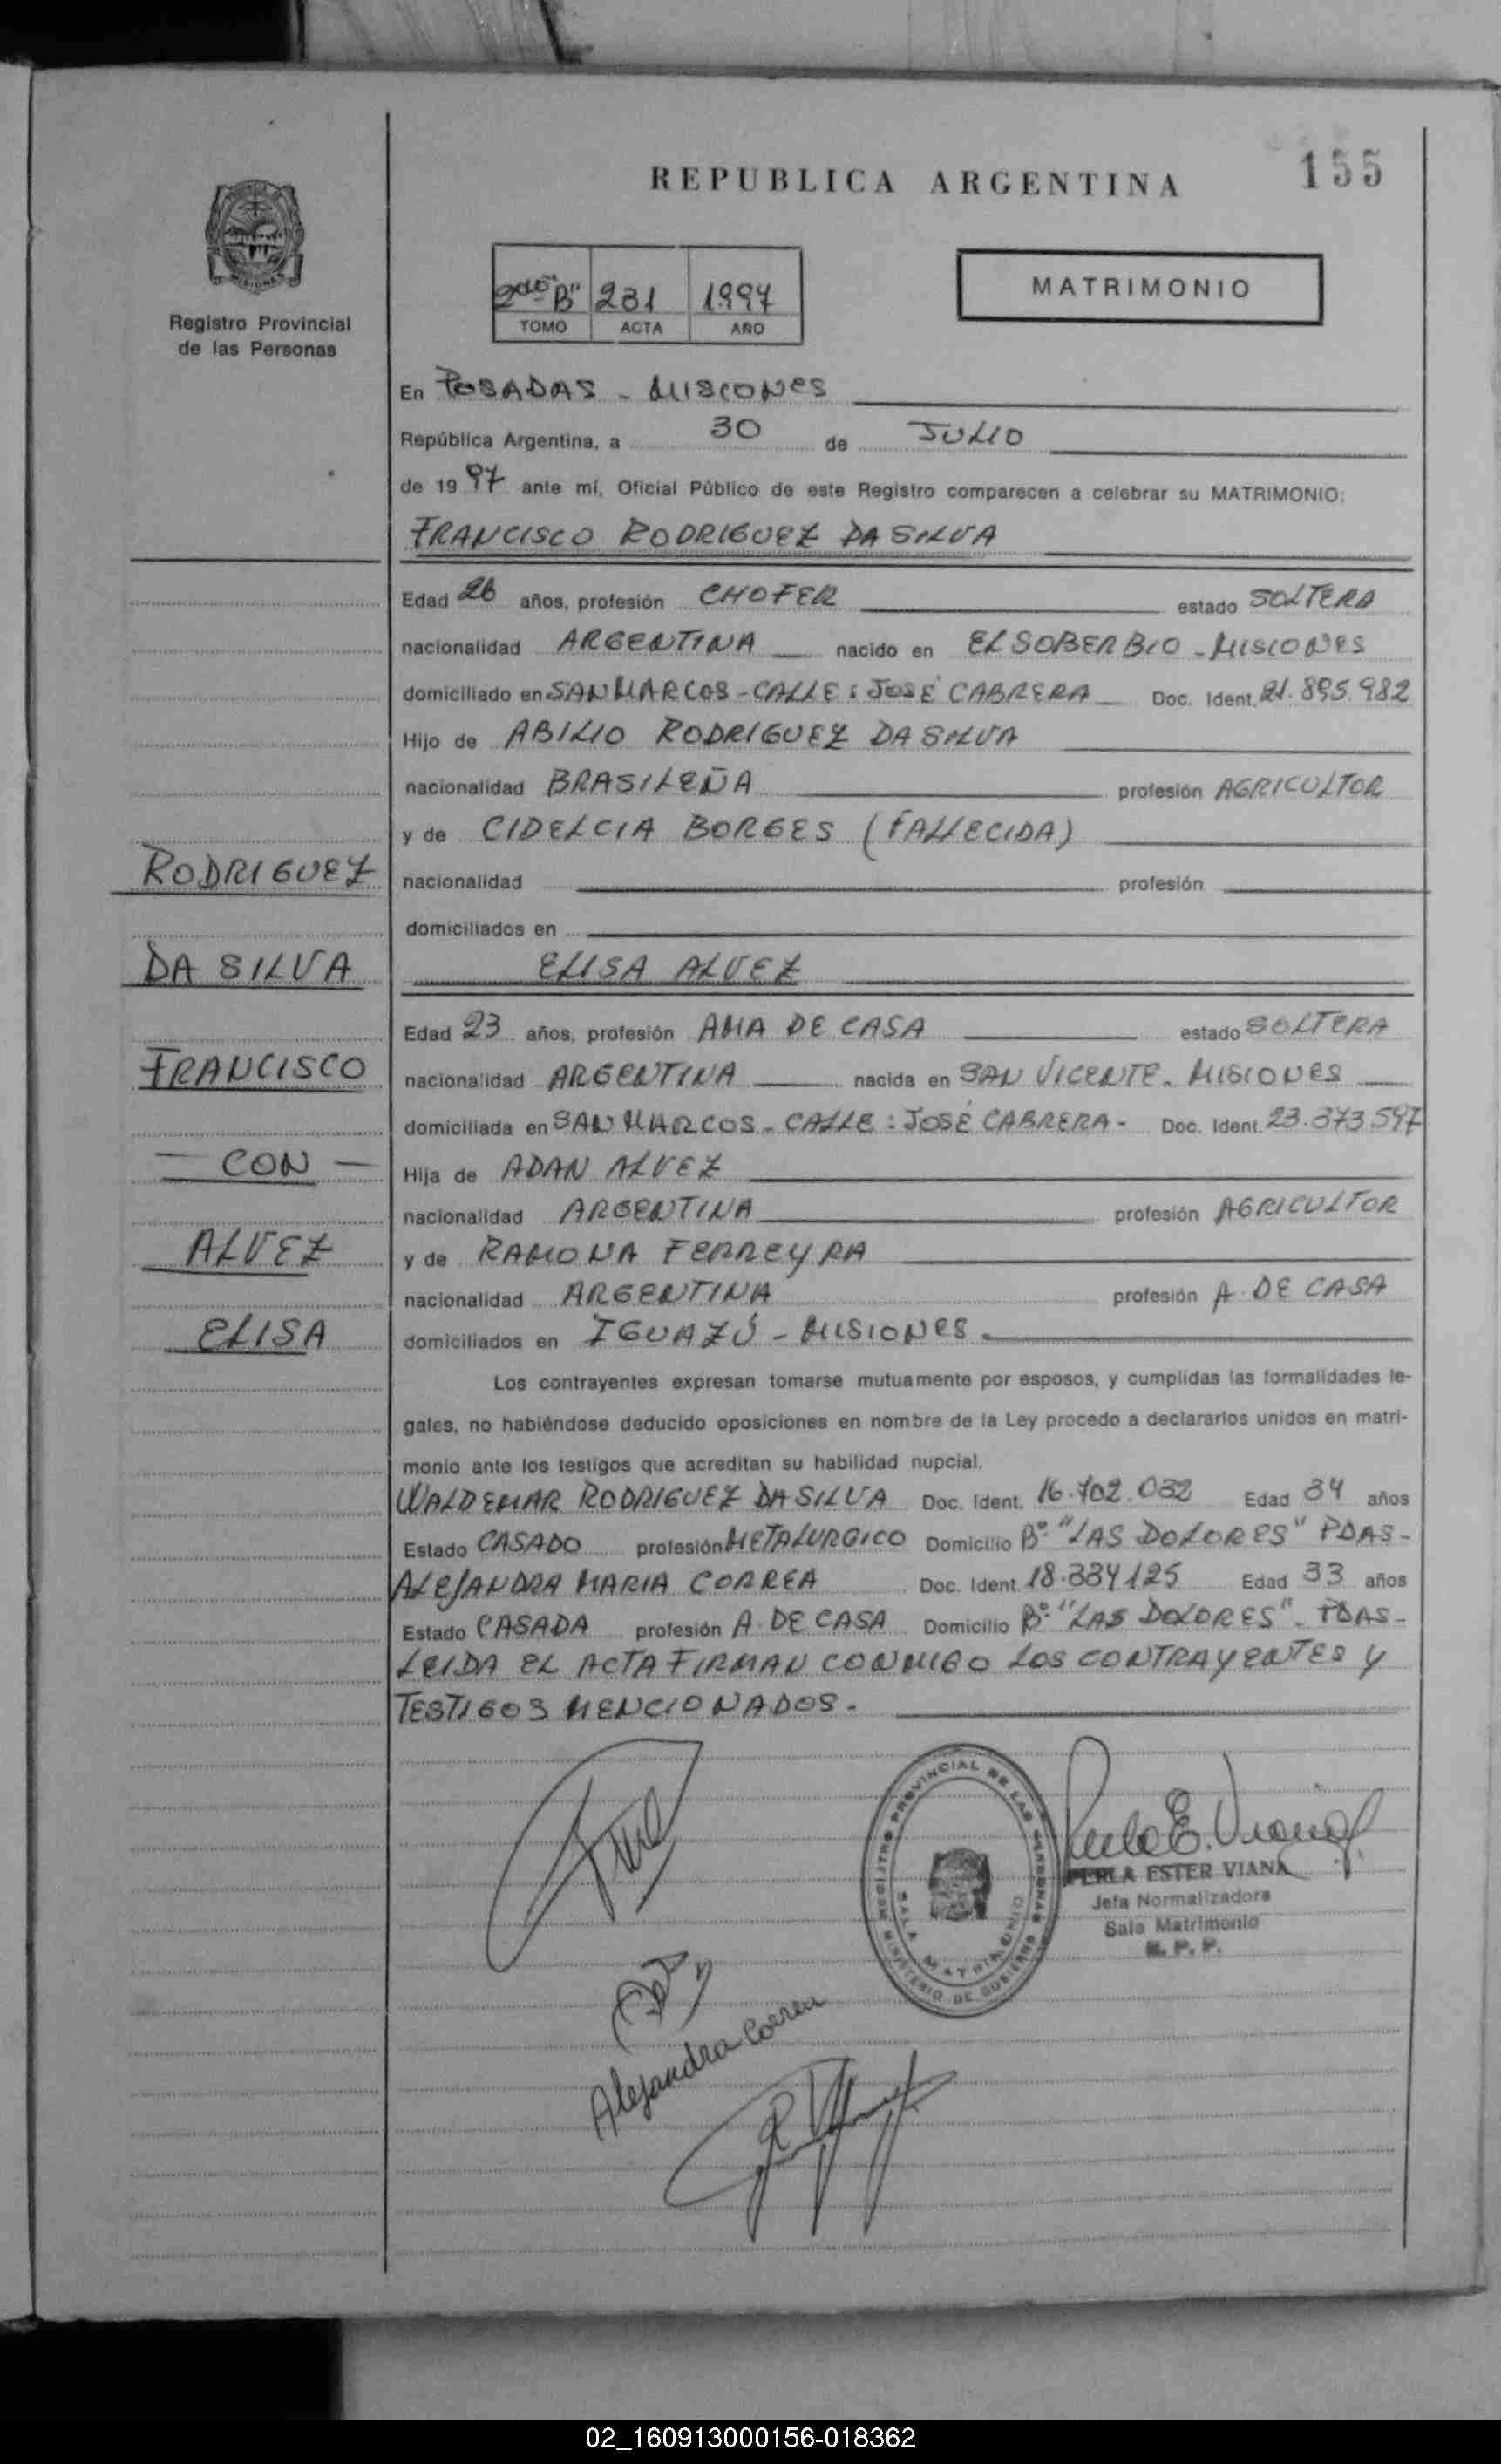 155
REPUBLICA ARGENTINA
MATRIMONIO
2do "B" 231 1997
TOMO ACTA AÑO
Registro Provincial
de las Personas
En POSADAS - MISIONES
República Argentina, a 30 de JULIO
de 19 97 ante mí, Oficial Público de este Registro comparecen a celebrar su MATRIMONIO:
FRANCISCO RODRIGUEZ DA SILVA
Edad 26 años, profesión CHOFER estado SOLTERO
nacionalidad ARGENTINA nacido en EL SOBERBIO - MISIONES
domiciliado en SAN MARCOS - CALLE: JOSÉ CABRERA Doc. Ident. 21.895.982
Hijo de ABILIO RODRIGUEZ DA SILVA
nacionalidad BRASILEÑA profesión AGRICULTOR
y de CIDELCIA BORGES (FALLECIDA)
nacionalidad profesión
domiciliados en
ELISA ALVEZ
Edad 23 años, profesión AMA DE CASA estado SOLTERA
nacionalidad ARGENTINA nacida en SAN VICENTE - MISIONES
domiciliada en SAN MARCOS - CALLE: JOSÉ CABRERA - Doc. Ident. 23.373.597
Hija de ADAN ALVEZ
nacionalidad ARGENTINA profesión AGRICULTOR
y de RAMONA FERREYRA
nacionalidad ARGENTINA profesión A. DE CASA
domiciliados en IGUAZÚ - MISIONES
RODRIGUEZ
DA SILVA
FRANCISCO
- CON -
ALVEZ
ELISA
Los contrayentes expresan tomarse mutuamente por esposos, y cumplidas las formalidades le-
gales, no habiéndose deducido oposiciones en nombre de la Ley procedo a declararlos unidos en matri-
monio ante los testigos que acreditan su habilidad nupcial.
WALDEMAR RODRIGUEZ DA SILVA Doc. Ident. 16.702.032 Edad 34 años
Estado CASADO profesión METALURGICO Domicilio Bº "LAS DOLORES" PDAS-
ALEJANDRA MARIA CORREA Doc. Ident. 18.334125 Edad 33 años
Estado CASADA profesión A. DE CASA Domicilio Bº "LAS DOLORES" - PDAS-
LEIDA EL ACTA FIRMAN CONMIGO LOS CONTRAYENTES Y
TESTIGOS MENCIONADOS.
REGISTRO PROVINCIAL DE LAS PERSONAS
SALA MATRIMONIO
MINISTERIO DE GOBIERNO
Perla E. Viana
PERLA ESTER VIANA
Jefa Normalizadora
Sala Matrimonio
R. P. P.
Alejandra Correa
02_160913000156-018362